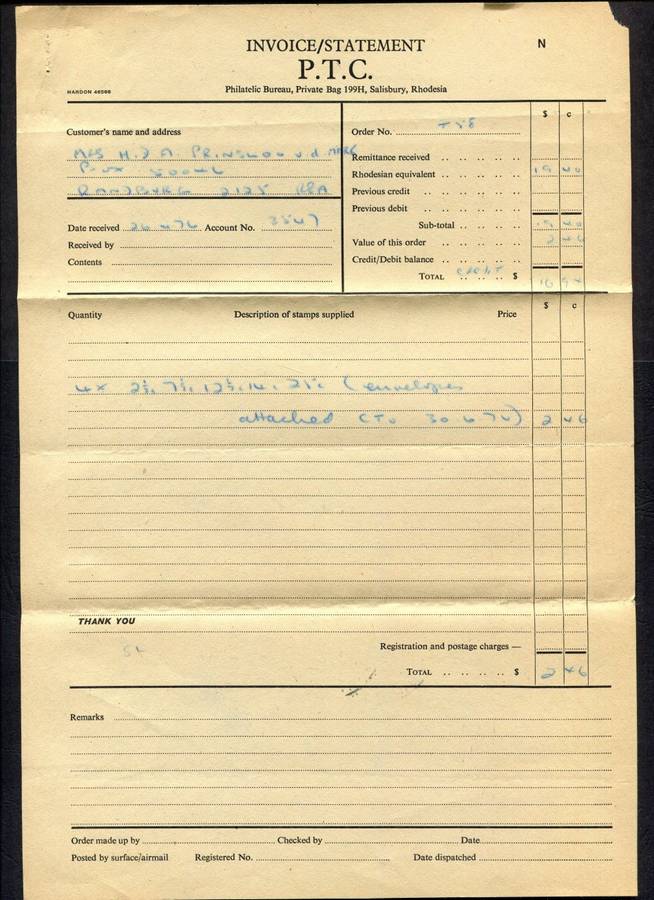 INVOICE/STATEMENT
N
P.T.C.
HARDON 46568
Philatelic Bureau, Private Bag 199H, Salisbury, Rhodesia
$ c
Customer's name and address
MRS H. J A. PRINSLOO v.d. MERC
P. BOX
RANDBURG 2125 RSA
Date received 26 4 74 Account No. 3547
Received by
Contents
Order No.
Remittance received
Rhodesian equivalent 19 40
Previous credit
Previous debit
Sub-total 19 40
Value of this order 2 46
Credit/Debit balance
TOTAL credit $ 16 94
Quantity Description of stamps supplied Price $ c
4x 2½, 7½, 12½, 14, 25c (envelopes
attached CTO 30 4 74) 2 46
THANK YOU
Registration and postage charges —
TOTAL $ 2 46
Remarks
Order made up by Checked by Date
Posted by surface/airmail Registered No. Date dispatched